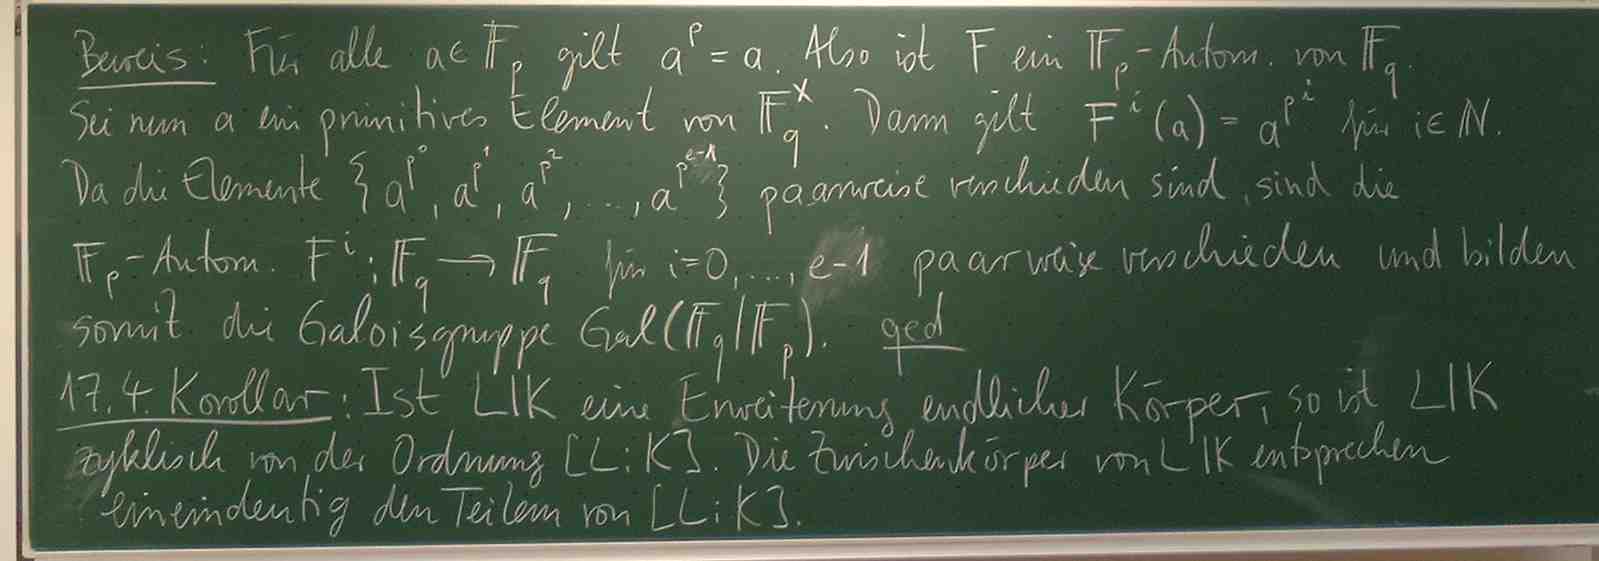 Beweis: Für alle a ∈ 𝔽_p gilt a^p = a. Also ist F ein 𝔽_p-Autom. von 𝔽_q.
Sei nun a ein primitives Element von 𝔽_q^×. Dann gilt F^i(a) = a^{p^i} für i ∈ ℕ.
Da die Elemente {a^{p^0}, a^{p^1}, a^{p^2}, ..., a^{p^{e-1}}} paarweise verschieden sind, sind die
𝔽_p-Autom. F^i: 𝔽_q → 𝔽_q für i=0, ..., e-1 paarweise verschieden und bilden
somit die Galoisgruppe Gal(𝔽_q|𝔽_p). qed
17.4. Korollar: Ist L|K eine Erweiterung endlicher Körper, so ist L|K
zyklisch von der Ordnung [L:K]. Die Zwischenkörper von L|K entsprechen
eineindeutig den Teilern von [L:K].